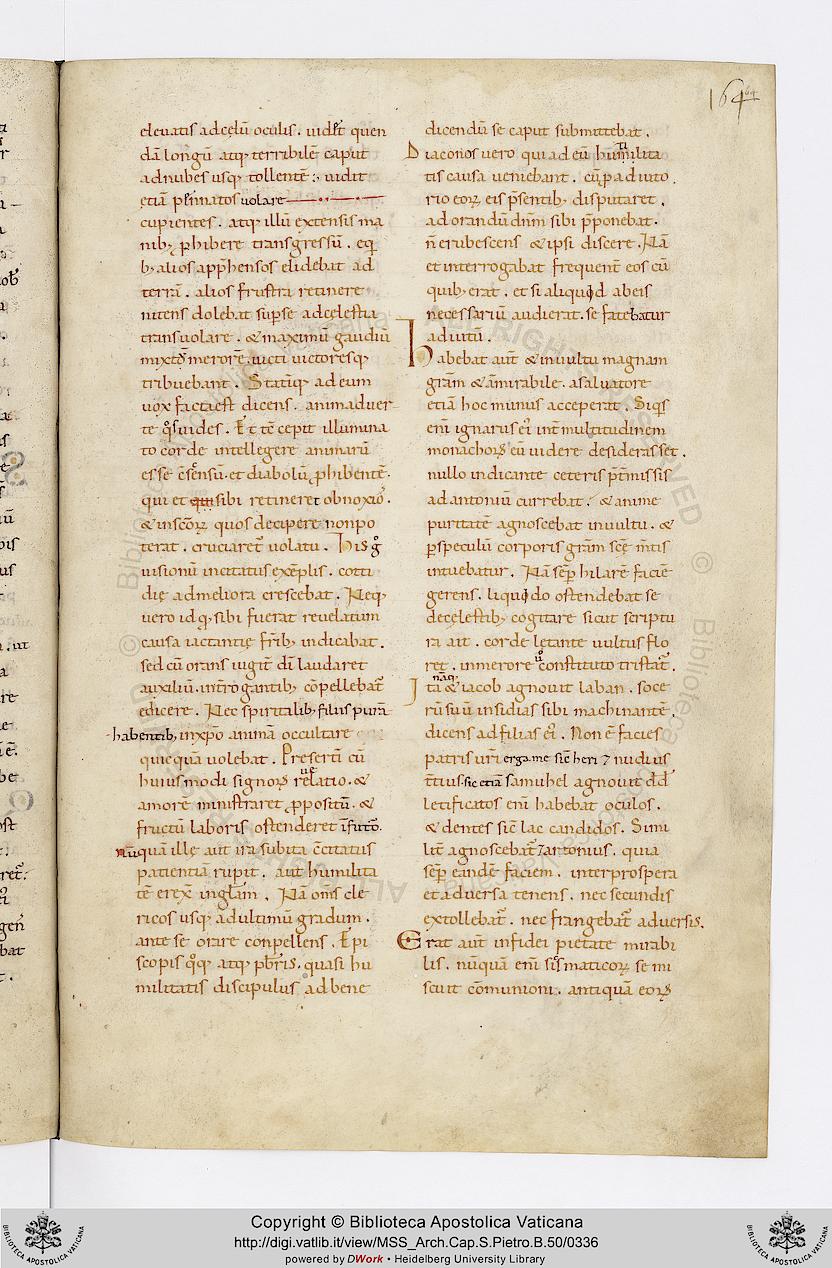 164
elevatis ad cęlū oculis. vidit quen
dā longū atq; terribilē caput
ad nubes usq; tollentē; vidit
etiā pennatos volare
cupientes. atq; illū extensis ma
nib; phibere transgressū. eq
b; alios appͬhensos elidebat ad
terrā. alios frustra retinere
nitens dolebat supse ad cęlestia
transvolare. & maximū gaudiū
mixtō merore. victi victoresq;
tribuebant. Statiq; ad eum
vox facta est dicens. animadver
te qͥs vides. Et tē cepit illumina
to corde intellegere animarū
esse csensū. et diabolū phibentē.
qui et sibi retineret obnoxio.
& in scōꝝ quos decipere non po
terat. cruciaret volatu. His g̊
visionū incitatus exēplis. cotti
die ad meliora crescebat. Neq;
vero id q; sibi fuerat revelatum
causa iactantię frīb; indicabat.
sed cū orans iugit dī laudaret
auxiliū. introgantib; cōpellebat
edicere. Nec spiritalib; filiis purā
habentib; in xp̄o animā occultare
quicquā volebat. Presertī cū
huius modi signoꝝ relatio. &
amore ministraret ppositū. &
fructū laboris ostenderet
Nūquā ille aut ira subita cc̄itatus
patientiā rupit. aut humilita
tē erex̄ in gl̄am. Nā om̄s cle
ricos usq; ad ultimū gradum.
ante se orare conpellens. Epi
scopis qͦq; atq; pbr̄is. quasi hu
militatis discipulus ad bene
dicendū se caput submittebat.
Diaconos vero qui ad eū humilita
tis causa veniebant. cū p adiuto
rio eoꝝ eis p̄sentib; disputaret.
ad orandū dn̄m sibi p̄ponebat.
n̄ erubescens & ipsi discere. Nā
et interrogabat frequent̄ eos cū
quib; erat. et si aliquid ab eis
necessariū audierat. se fatebatur
adiutū.
Habebat aut̄ & in vultu magnam
gr̄am & ammirabilē. a salvatore
etiā hoc munus acceperat. Siqͥs
em̄ ignarus eī int̄ multitudinem
monachoꝝ eū videre desiderasset.
nullo indicante ceteris p̄tmissis
ad antoniū currebat. & anime
puritatē agnoscebat in vultu. &
p speculū corporis gr̄am scę m̄tis
intuebatur. Nā sēp hilarē faciē
gerens. liquido ostendebat se
de cęlestib; cogitare sicut scriptu
ra ait. corde lętante vultus flo
ret. in merore constituto tristat.
Ita & iacob agnovit laban. soce
rū suū insidias sibi machinantē.
dicens ad filias eī. Non ē facies
patris vr̄i erga me sic̄ heri 7 nudius
t̄tius. sic etiā samuhel agnovit dd̄
letificatos em̄ habebat oculos.
& dentes sic̄ lac candidos. Simi
lit̄ agnoscebat 7 antonius. quia
sēp eandē faciem. inter prospera
et adversa tenens. nec secundis
extollebat. nec frangebat adversis.
Erat aut̄ in fidei pietate mirabi
lis. nūquā em̄ sismaticoꝝ se mi
scuit cōmunioni. antiquā eoꝝ
Copyright © Biblioteca Apostolica Vaticana
http://digi.vatlib.it/view/MSS_Arch.Cap.S.Pietro.B.50/0336
powered by DWork • Heidelberg University Library